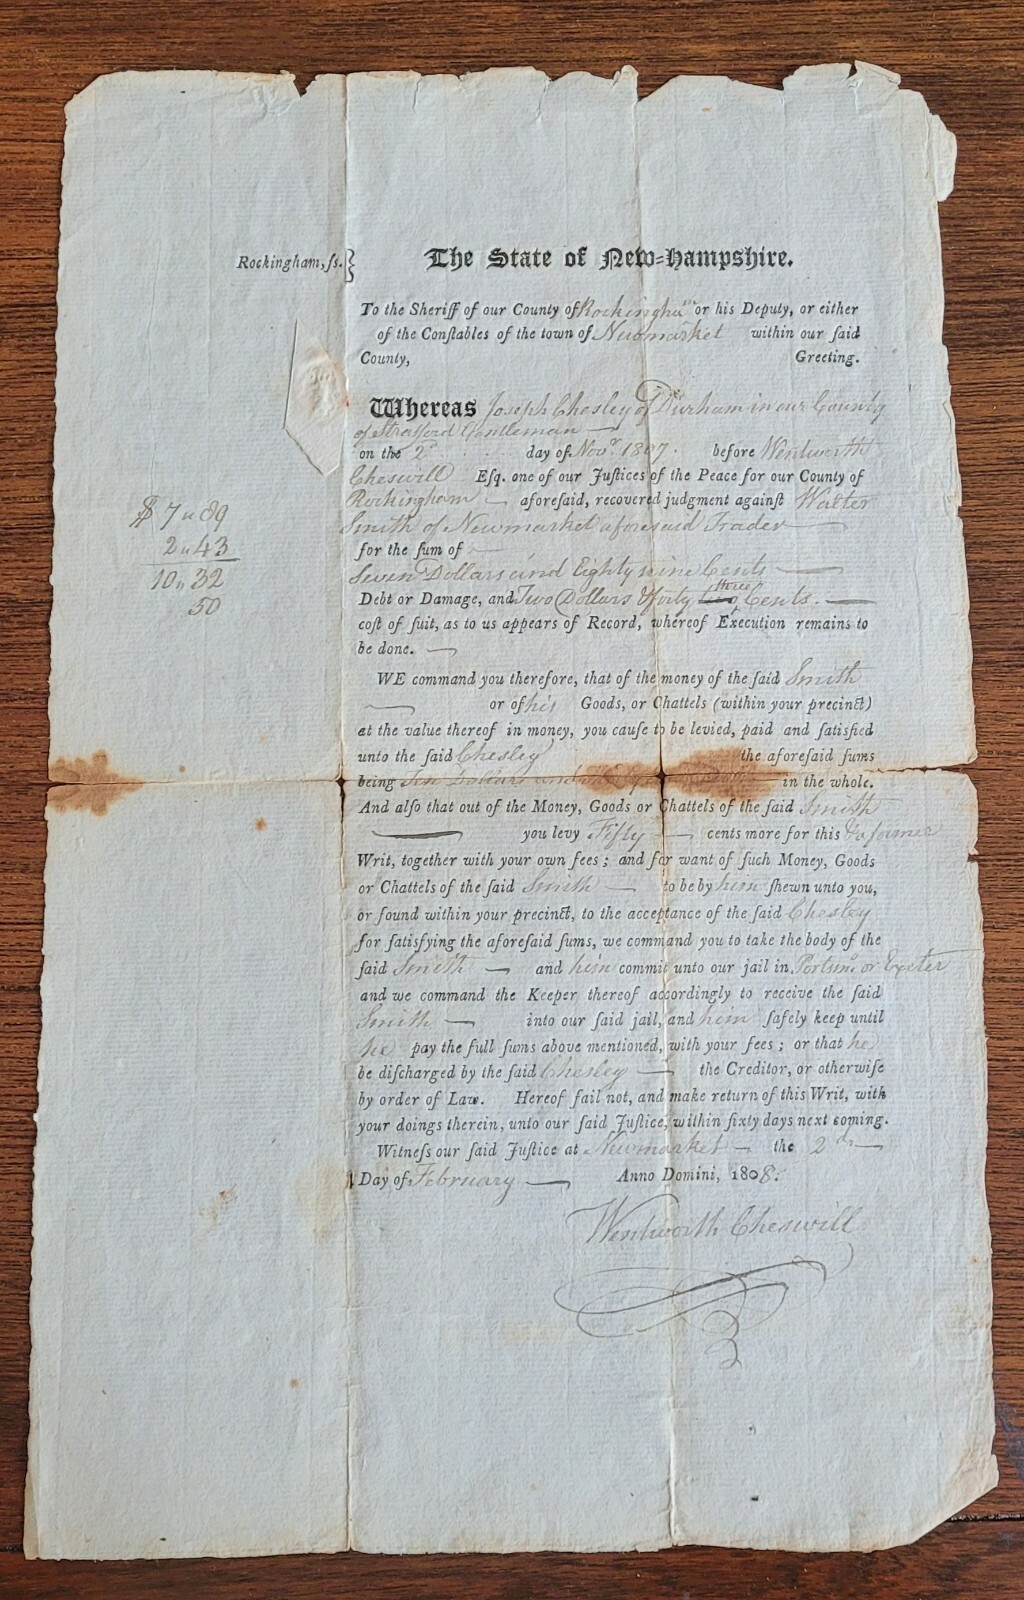 Rockingham, ſs.
The State of New-Hampshire.
To the Sheriff of our County of Rockingham or his Deputy, or either
of the Conſtables of the town of Newmarket within our ſaid
County, Greeting.
Whereas Joseph Chesley of Durham in our County
of Strafford Gentleman
on the 2d day of Novr 1807. before Wentworth
Cheswill Eſq. one of our Juſtices of the Peace for our County of
Rockingham aforeſaid, recovered judgment againſt Walter
Smith of Newmarket aforesaid Trader
for the ſum of
$ 7 " 89
2 " 43
10 " 32
50
Seven Dollars and Eighty nine Cents
Debt or Damage, and Two Dollars & forty two three Cents.
coſt of ſuit, as to us appears of Record, whereof Execution remains to
be done.
WE command you therefore, that of the money of the ſaid Smith
or of his Goods, or Chattels (within your precinct)
at the value thereof in money, you cauſe to be levied, paid and ſatisfied
unto the ſaid Chesley the aforeſaid ſums
being Ten Dollars and in the whole.
And alſo that out of the Money, Goods or Chattels of the ſaid Smith
you levy Fifty cents more for this & a former
Writ, together with your own fees ; and for want of ſuch Money, Goods
or Chattels of the ſaid Smith to be by him ſhewn unto you,
or found within your precinct, to the acceptance of the ſaid Chesley
for ſatisfying the aforeſaid ſums, we command you to take the body of the
ſaid Smith and him commit unto our jail in Portsmo or Exeter
and we command the Keeper thereof accordingly to receive the ſaid
Smith into our ſaid jail, and him ſafely keep until
he pay the full ſums above mentioned, with your fees ; or that he
be diſcharged by the ſaid Chesley the Creditor, or otherwiſe
by order of Law. Hereof fail not, and make return of this Writ, with
your doings therein, unto our ſaid Juſtice, within ſixty days next coming.
Witneſs our ſaid Juſtice at Newmarket the 2d
Day of February Anno Domini, 1808.
Wentworth Cheswill